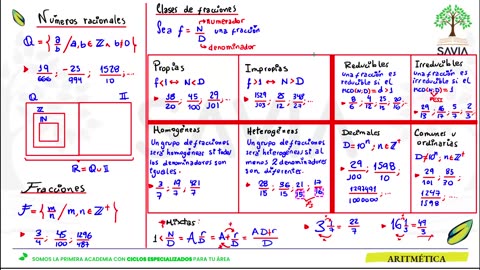 Números racionales
Q = {a/b / a,b ∈ Z ∧ b≠0}
19/666 ; -23/994 ; 1528/10 ; ...
Q
II
Z
N
R = Q ∪ II
Fracciones
F = {m/n / m,n ∈ Z⁺}
3/4 , 45/100 , 1296/487
Clases de fracciones
Sea f = N/D una fracción
numerador
denominador
Propias
f<1 ↔ N<D
18/20 ; 45/100 ; 29/301 ; ...
Impropias
f>1 ↔ N>D
1529/103 ; 25/12 ; 348/247 ; ...
Reducibles
una fracción es
reducible si el
MCD(N;D) = d > 1
8/6 ; 4/12 ; 25/20 ; 30/16 ; ...
Irreducibles
una fracción es
irreducible si el
MCD(N;D) = 1
PESI
29/13 ; 16/3 ; 5/7 ; 2/3
Homogéneas
Un grupo de fracciones
será homogéneas si todos
los denominadores son
iguales.
3/7 ; 19/7 ; 121/7
Heterogéneas
Un grupo de fracciones
será heterogéneas si al
menos 2 denominadores
son diferentes.
28/15 ; 36/15 ; 21/15 ; 17/16
Decimales
D = 10ⁿ ; n ∈ Z⁺
29/10 ; 1598/10 ;
1297991/1000000
Comunes u
ordinarias
D ≠ 10ⁿ, n ∈ Z⁺
29/101 ; 85/30 ;
1247/1598
Mixtas:
N/D = A r/D = A + r/D = AD+r/D
3 1/7 = 22/7
16 1/3 = 49/3
SAVIA
SOMOS LA PRIMERA ACADEMIA CON CICLOS ESPECIALIZADOS PARA TU ÁREA
ARITMÉTICA